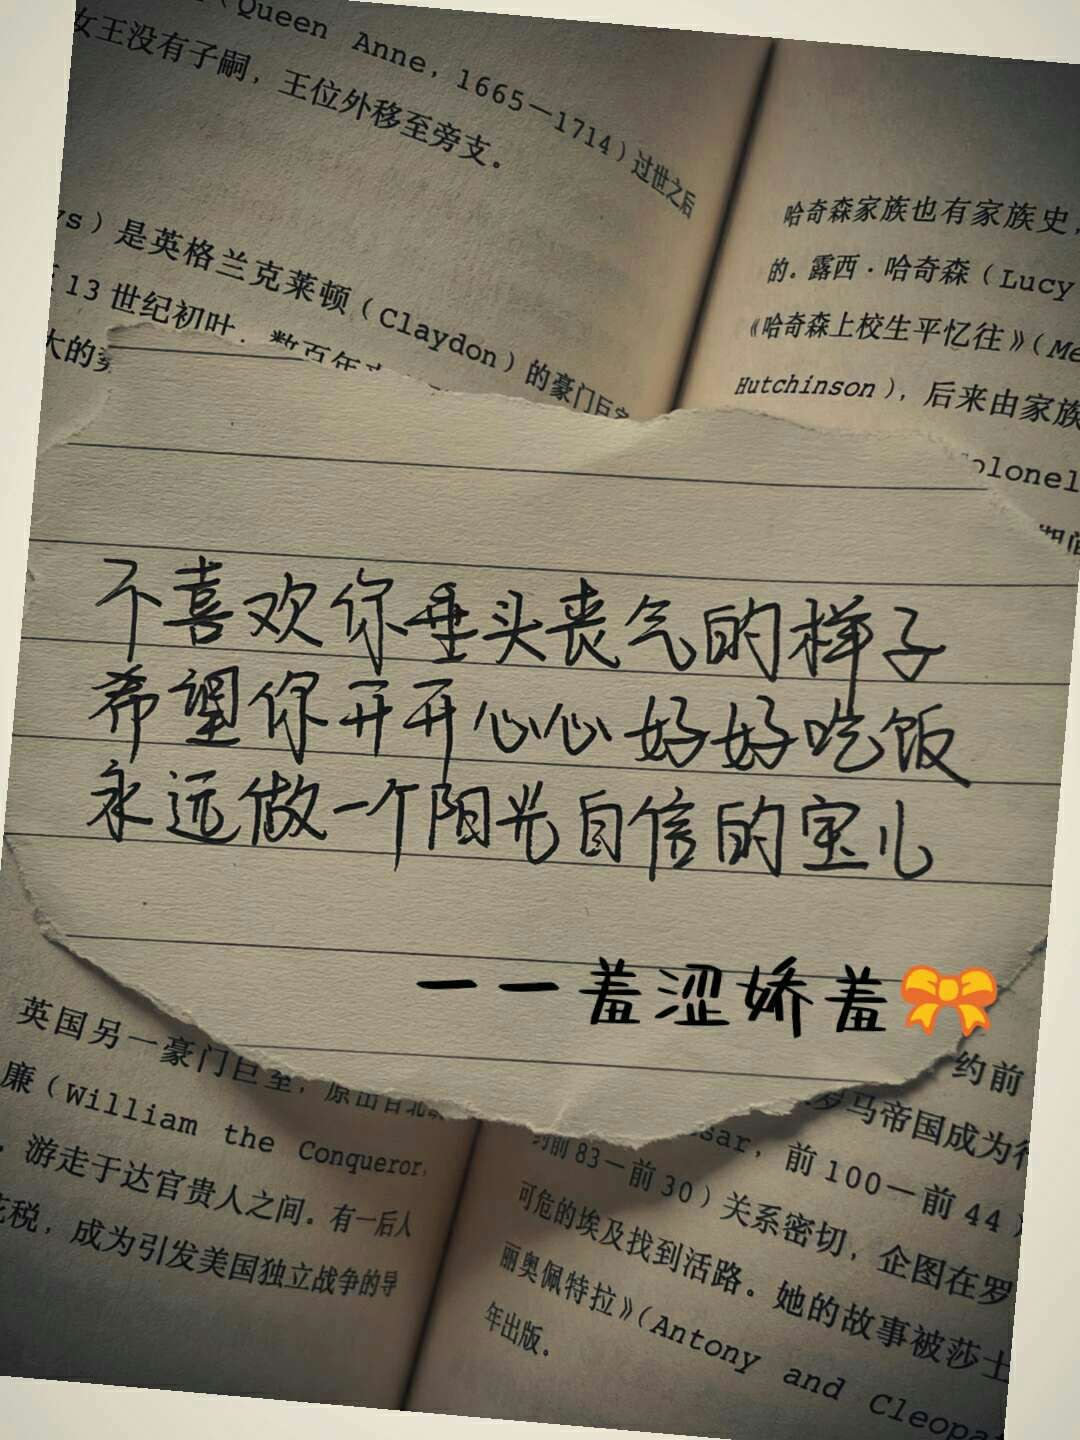 （Queen Anne, 1665—1714）过世之后
女王没有子嗣，王位外移至旁支。
ys）是英格兰克莱顿（Claydon）的豪门巨室
13世纪初叶，数百年来
大的
哈奇森家族也有家族史，
的。露西·哈奇森（Lucy
《哈奇森上校生平忆往》（Me
Hutchinson），后来由家族
Colonel
期间
不喜欢你垂头丧气的样子
希望你开开心心好好吃饭
永远做一个阳光自信的宝儿
一一羞涩娇羞🎀
英国另一豪门巨室，原出自北
廉（William the Conqueror,
，游走于达官贵人之间。有一后人
花税，成为引发美国独立战争的导
约前
罗马帝国成为行
sar，前100—前44
约前83—前30）关系密切，企图在罗
可危的埃及找到活路。她的故事被莎士
丽奥佩特拉》（Antony and Cleopat
年出版。